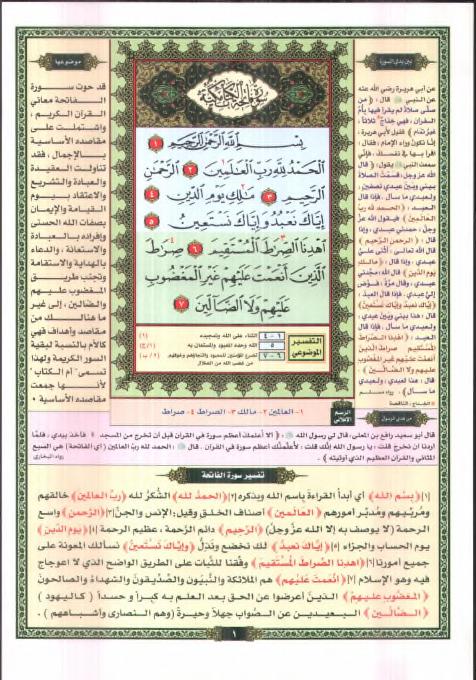 موضوعها
قد حوت سورة
الفاتحة معاني
القرآن الكريم ،
واشتملت على
مقاصده الأساسية
بالإجمال ، فقد
تناولت العقيدة
والعبادة والتشريع
والاعتقاد بيوم
القيامة والإيمان
بصفات الله الحسنى
وإفراده بالعبادة
والاستعانة ، والدعاء
بالهداية والاستقامة
وتجنب طريق
المغضوب عليهم
والضالين ، إلى غير
ما هنالك من
مقاصد وأهداف فهي
كالأم بالنسبة لبقية
السور الكريمة ولهذا
تسمى "أم الكتاب"
لأنها جمعت
مقاصده الأساسية .
بين يدي السورة
عن أبي هريرة رضي الله عنه
عن النبي ﷺ قال : (من
صلى صلاة لم يقرأ فيها بأم
القرآن ، فهي خداج " ثلاثاً ،
غير تمام ) فقيل لأبي هريرة :
إنا نكون وراء الإمام ، فقال :
اقرأ بها في نفسك ، فإني
سمعت النبي ﷺ يقول : ( قال
الله عز وجل: قسمت الصلاة
بيني وبين عبدي نصفين ،
ولعبدي ما سأل ، فإذا قال
العبد : ﴿الحمد لله رب
العالمين﴾ ، قال الله عز
وجل : حمدني عبدي ، وإذا
قال : ﴿الرحمن الرحيم﴾
قال الله تعالى : أثنى علي
عبدي ، وإذا قال : ﴿مالك
يوم الدين﴾ قال الله: مجدني
عبدي ، وقال مرة : فوض
إلي عبدي ، فإذا قال :
﴿إياك نعبد وإياك نستعين﴾
قال : هذا بيني وبين عبدي
ولعبدي ما سأل ، فإذا
قال : ﴿اهدنا الصراط
المستقيم صراط الذين
أنعمت عليهم غير المغضوب
عليهم ولا الضالين﴾
قال : هذا لعبدي ولعبدي
ما سأل ) .
سورة الفاتحة مكية
بِسْمِ اللَّهِ الرَّحْمَٰنِ الرَّحِيمِ ١
الْحَمْدُ لِلَّهِ رَبِّ الْعَالَمِينَ ٢ الرَّحْمَٰنِ
الرَّحِيمِ ٣ مَالِكِ يَوْمِ الدِّينِ ٤
إِيَّاكَ نَعْبُدُ وَإِيَّاكَ نَسْتَعِينُ ٥
اهْدِنَا الصِّرَاطَ الْمُسْتَقِيمَ ٦ صِرَاطَ
الَّذِينَ أَنْعَمْتَ عَلَيْهِمْ غَيْرِ الْمَغْضُوبِ
عَلَيْهِمْ وَلَا الضَّالِّينَ ٧
التفسير الموضوعي
الثناء على الله وتمجيده
الله وحده المعبود والمستعان به
الرسم الإملائي
١- العالمين ٢- مالك ٣- الصراط ٤- صراط
من هدي الرسول
قال أبو سعيد رافع بن المعلى: قال لي رسول الله ﷺ : ( ألا أعلمك أعظم سورة في القرآن قبل أن تخرج من المسجد ؟ فأخذ بيدي ، فلما
أردنا أن نخرج قلت : يا رسول الله إنك قلت : لأعلمنك أعظم سورة في القرآن . قال : الحمد لله رب العالمين ( أي الفاتحة ) هي السبع
المثاني والقرآن العظيم الذي أوتيته ) . رواه البخاري
تفسير سورة الفاتحة
[١] ﴿بسم الله﴾ أي أبدأ القراءة باسم الله وبذكره [٢] ﴿الحمد لله﴾ الشكر لله ﴿رب العالمين﴾ خالقهم
ومربيهم ومدبر أمورهم ﴿العالمين﴾ أصناف الخلق وقيل: الإنس والجن [٣] ﴿الرحمن﴾ واسع
الرحمة (لا يوصف به إلا الله عز وجل) ﴿الرحيم﴾ دائم الرحمة ، عظيم الرحمة [٤] ﴿يوم الدين﴾
يوم الحساب والجزاء [٥] ﴿إياك نعبد﴾ لك نخضع ونذل ﴿وإياك نستعين﴾ نسألك المعونة على
جميع أمورنا [٦] ﴿اهدنا الصراط المستقيم﴾ وفقنا للثبات على الطريق الواضح الذي لا اعوجاج
فيه وهو الإسلام [٧] ﴿أنعمت عليهم﴾ هم الملائكة والنبيون والصديقون والشهداء والصالحون
﴿المغضوب عليهم﴾ الذين أعرضوا عن الحق بعد العلم به كبراً و حسداً ( كاليهود )
﴿الضالين﴾ البعيدين عن الصواب جهلاً وحيرة (وهم النصارى وأشباههم) .
١